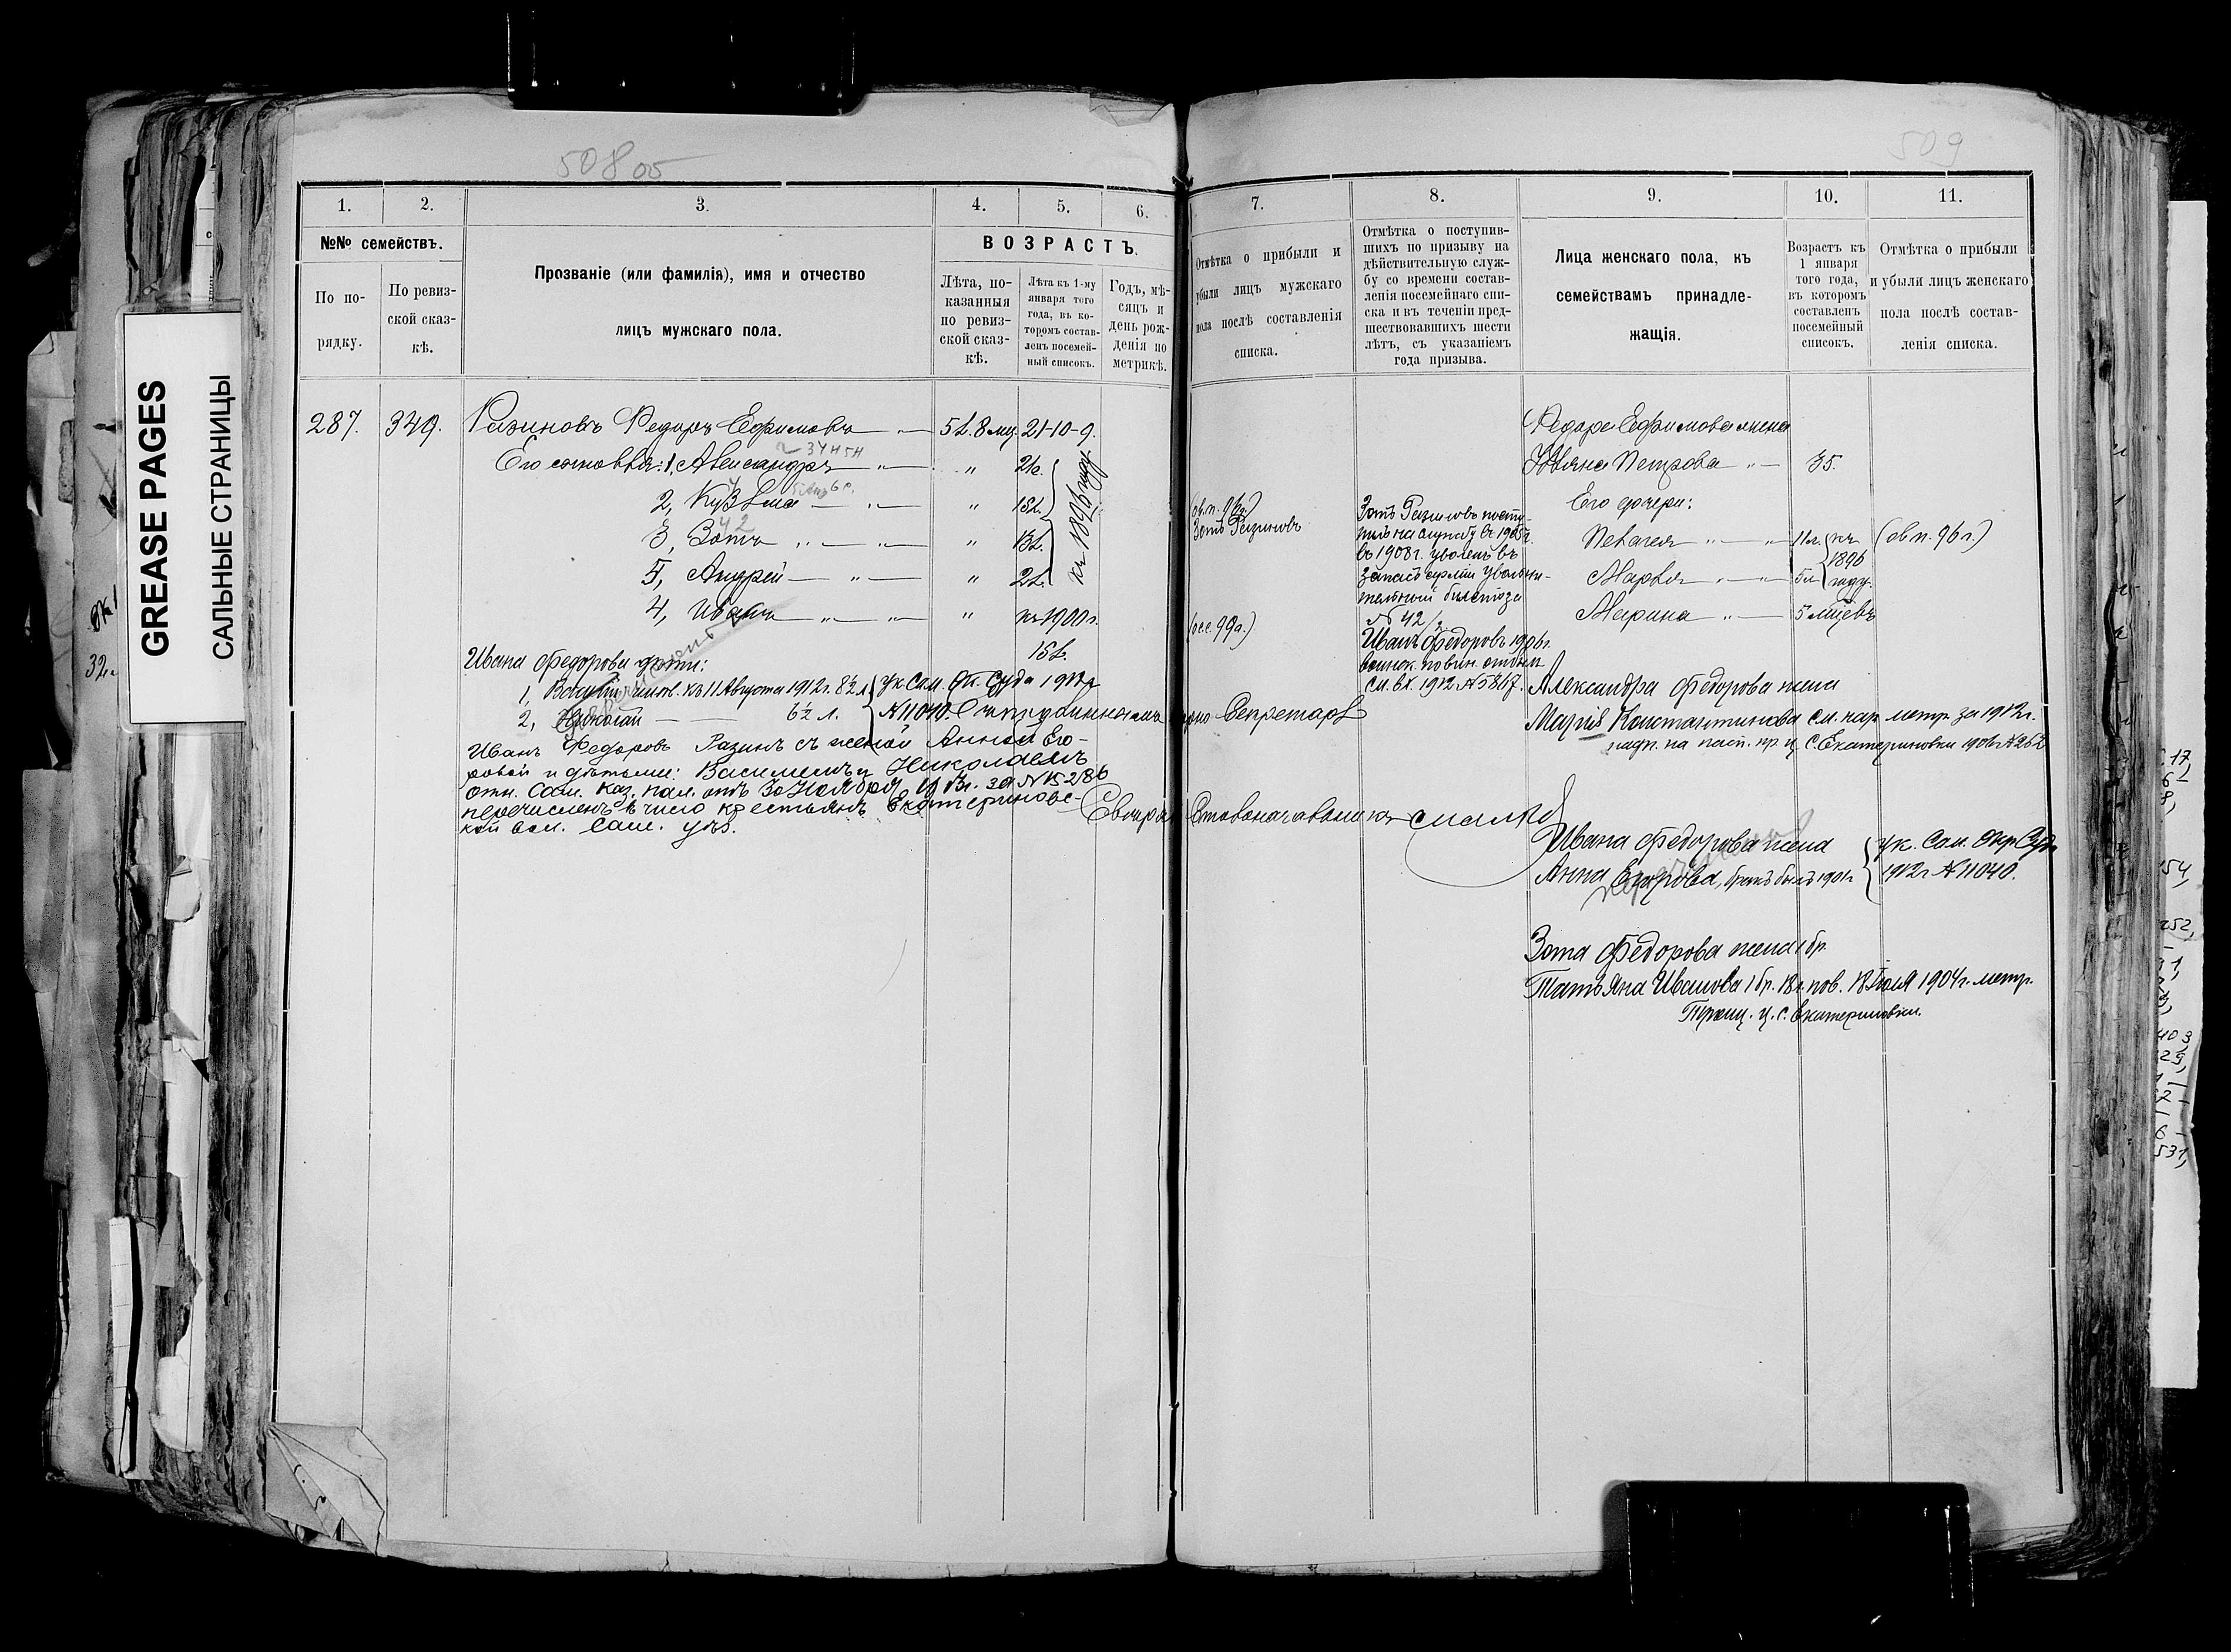 508 об
509
GREASE PAGES
САЛЬНЫЕ СТРАНИЦЫ
1. 2. 3. 4. 5. 6.
№№ семействъ.
По по-
рядку.
По ревиз-
ской сказ-
кѣ.
Прозваніе (или фамилія), имя и отчество
лицъ мужскаго пола.
ВОЗРАСТЪ.
Лѣта, по-
казанныя
по ревиз-
ской сказ-
кѣ.
Лѣта къ 1-му
января того
года, въ ко-
торомъ состав-
ленъ посемей-
ный списокъ.
Годъ, мѣ-
сяцъ и
день рож-
денія по
метрикѣ.
287. 349. Разиновъ Федоръ Ефимовъ 5 л. 8 мц. 21-10-9.
Его сыновья: 1, Александръ " 21 г.
2, Кузьма " 15 л.
3, Зотъ " 13 л.
5, Андрей " 2 л.
къ 1896 году
4, Иванъ " къ 1900 г.
15 л.
Ивана Федорова дети:
1, Василій 11 Августа 1912 г. 8½ л.
2, Николай 6½ л.
Ук. Сам. Ок. Суда 1912 г.
№ 11040.
Иванъ Федоровъ Разинъ съ женой Анной Его-
ровой и дѣтьми: Василіемъ и Николаемъ
отн. Сам. Каз. Пал. отъ 30 Ноября за № 15286
перечисленъ въ число крестьянъ Екатериновс-
кой вол. Сам. уѣз.
7. 8. 9. 10. 11.
Отмѣтка о прибыли и
убыли лицъ мужскаго
пола послѣ составленія
списка.
Отмѣтка о поступив-
шихъ по призыву на
дѣйствительную служ-
бу со времени состав-
ленія посемейнаго спи-
ска и въ теченіи пред-
шествовавшихъ шести
лѣтъ, съ указаніемъ
года призыва.
Лица женскаго пола, къ
семействамъ принадле-
жащія.
Возрастъ къ
1 января
того года,
въ которомъ
составленъ
посемейный
списокъ.
Отмѣтка о прибыли
и убыли лицъ женскаго
пола послѣ состав-
ленія списка.
Зотъ Разиновъ
Зотъ Разиновъ посту-
пилъ на службу въ 1905 г.
въ 1908 г. уволенъ въ
запасъ арміи увольни-
тельный билетъ за
№ 42
Иванъ Федоровъ 1906 г.
воинск. повин.
см. вх. 1912 № 5817.
Секретарь
Федора Ефимова жена
Ульяна Петрова 35.
Его дочери:
Пелагея 11 л. (об п. 96 г.)
Марья 5 л.
къ
1896
году
Марина 5 мѣцевъ
Александра Федорова жена
Марія Константинова см. метр. за 1912 г.
с. Екатериновки
Ивана Федорова жена
Анна Егорова, бракъ былъ 1901 г.
Ук. Сам. Окр. Суда
1912 г. № 11040.
Зота Федорова жена 1 бр.
Татьяна Иванова 1 бр. 18 л. пов. 18 Іюля 1904 г. метр.
Троиц. ц. с. Екатериновки.